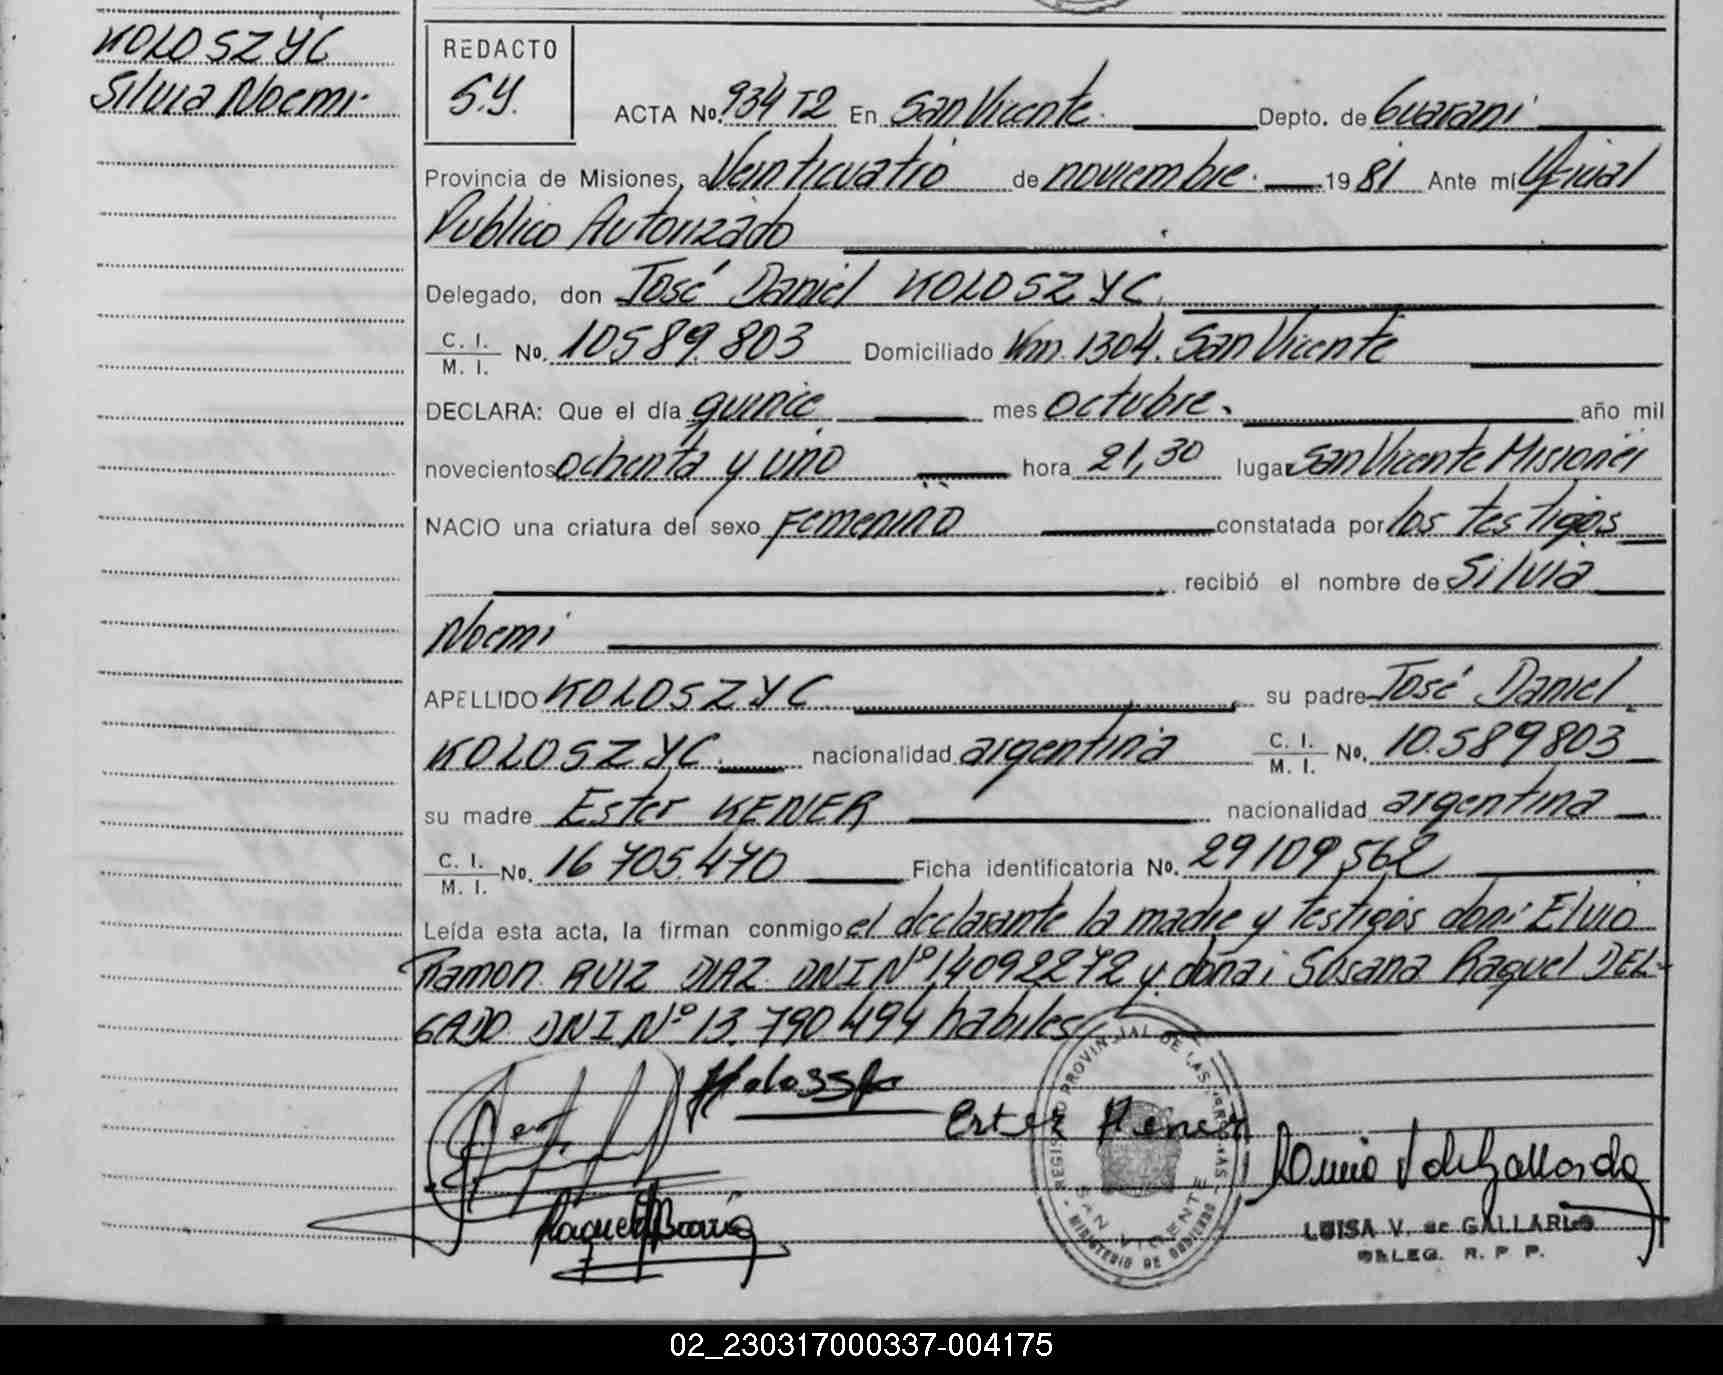 KOLOSZYC
Silvia Noemi.
REDACTO
S.Y.
ACTA No. 934 T2 En San Vicente. Depto. de Guarani
Provincia de Misiones, a Veinticuatro de noviembre. 1981 Ante mí Oficial
Publico Autorizado
Delegado, don José Daniel KOLOSZYC.
C. I.
M. I. No. 10.589.803 Domiciliado Km. 1304. San Vicente
DECLARA: Que el día quince mes octubre. año mil
novecientos ochenta y uno hora 21,30 lugar San Vicente Misiones
NACIO una criatura del sexo femenino constatada por los testigos
recibió el nombre de Silvia
Noemi
APELLIDO KOLOSZYC su padre José Daniel
KOLOSZYC. nacionalidad argentina C. I.
M. I. No. 10.589803
su madre Ester KENER nacionalidad argentina
C. I.
M. I. No. 16 705.470 Ficha identificatoria No. 29109562
Leída esta acta, la firman conmigo el declarante la madre y testigos don: Elvio
Ramon RUIZ DIAZ DNI Nº 14092272 y doña: Susana Raquel DEL-
GADO DNI Nº 13.790.494 habiles
Ester Kener
REGISTRO PROVINCIAL DE LAS PERSONAS
SAN VICENTE
MINISTERIO DE GOBIERNO
LUISA V. de GALLARDO
DELEG. R. P. P.
02_230317000337-004175